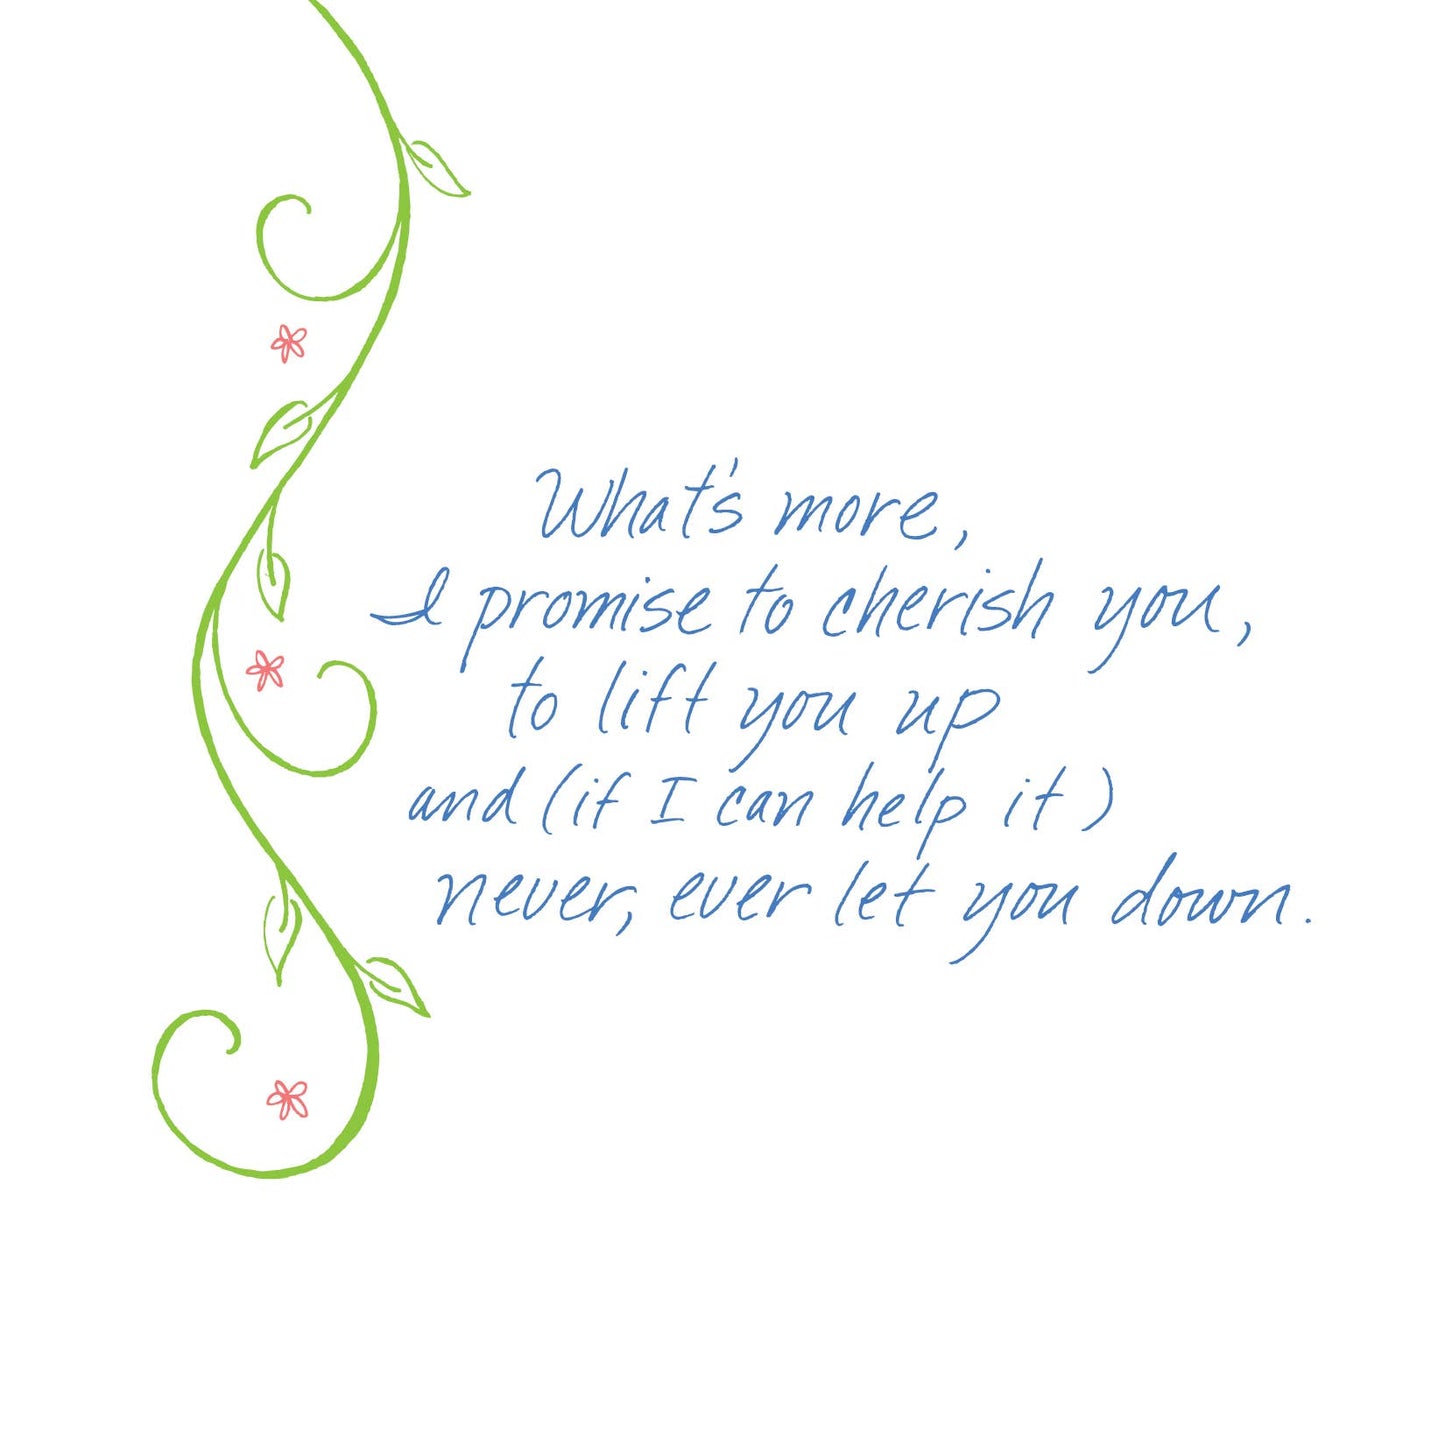 What's more,
I promise to cherish you,
to lift you up
and (if I can help it)
never, ever let you down.